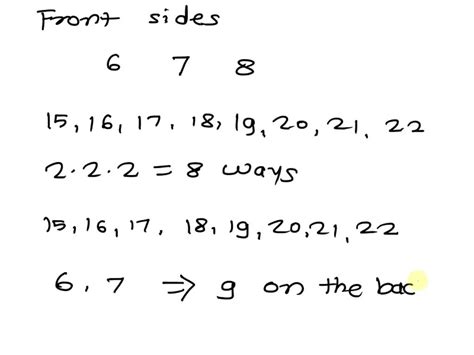 Front sides
6 7 8
15, 16, 17, 18, 19, 20, 21, 22
2·2·2 = 8 ways
15, 16, 17, 18, 19, 20, 21, 22
6, 7 ⇒ 9 on the bac